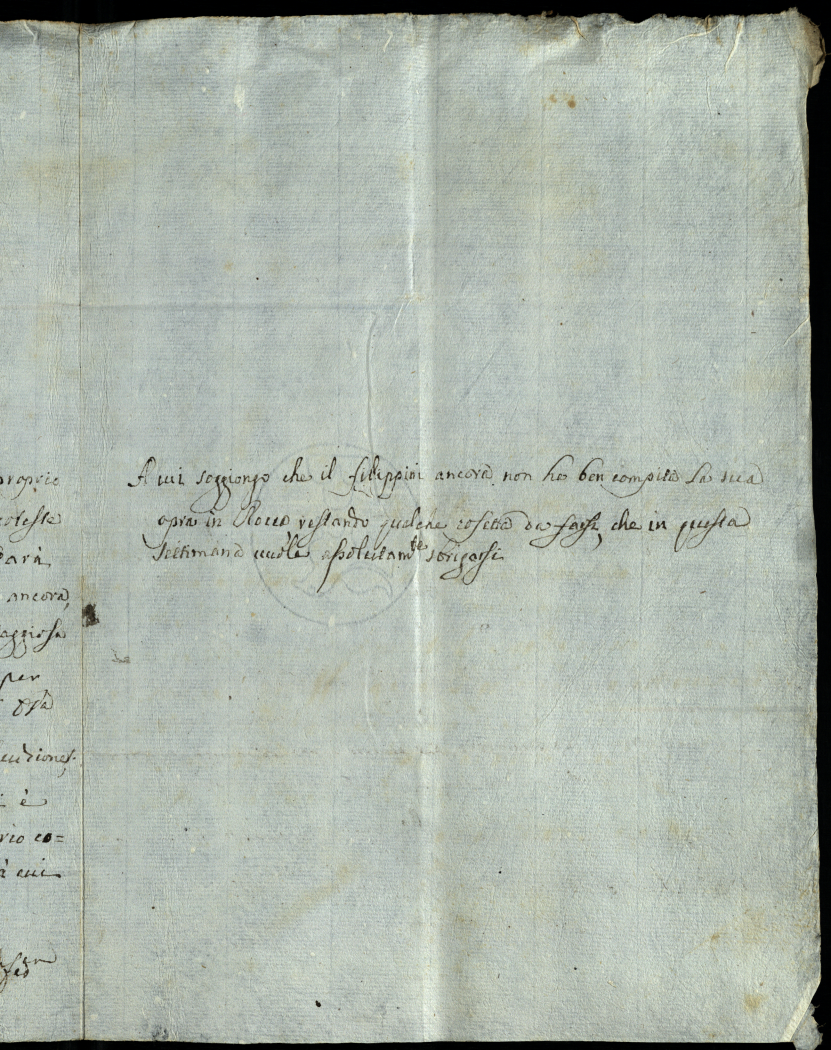 proprio
coteste
darà
ancora,
per
è
rio co=
à cui
A cui soggiongo che il filippini ancora non ha ben compita la sua
opra in Rocca restando qualche cosetta da farsi, che in questa
settimana vuole assolutam.te sbrigarsi